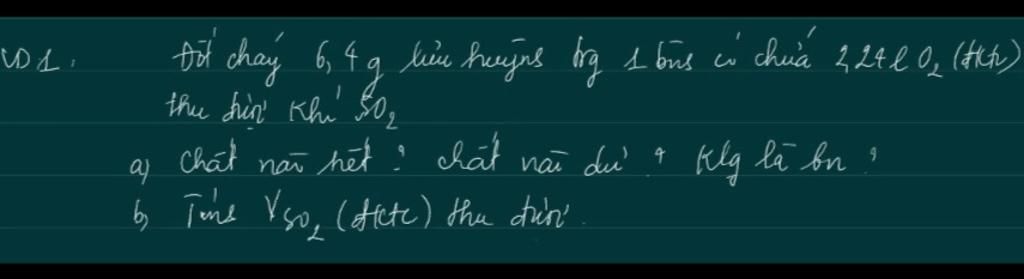 VD1. Đốt cháy 6,4g lưu huỳnh trg 1 bình có chứa 2,24l O₂ (đktc)
thu được khí SO₂
a) Chất nào hết? chất nào dư? Klg là bn?
b) Tính V SO₂ (đktc) thu được.